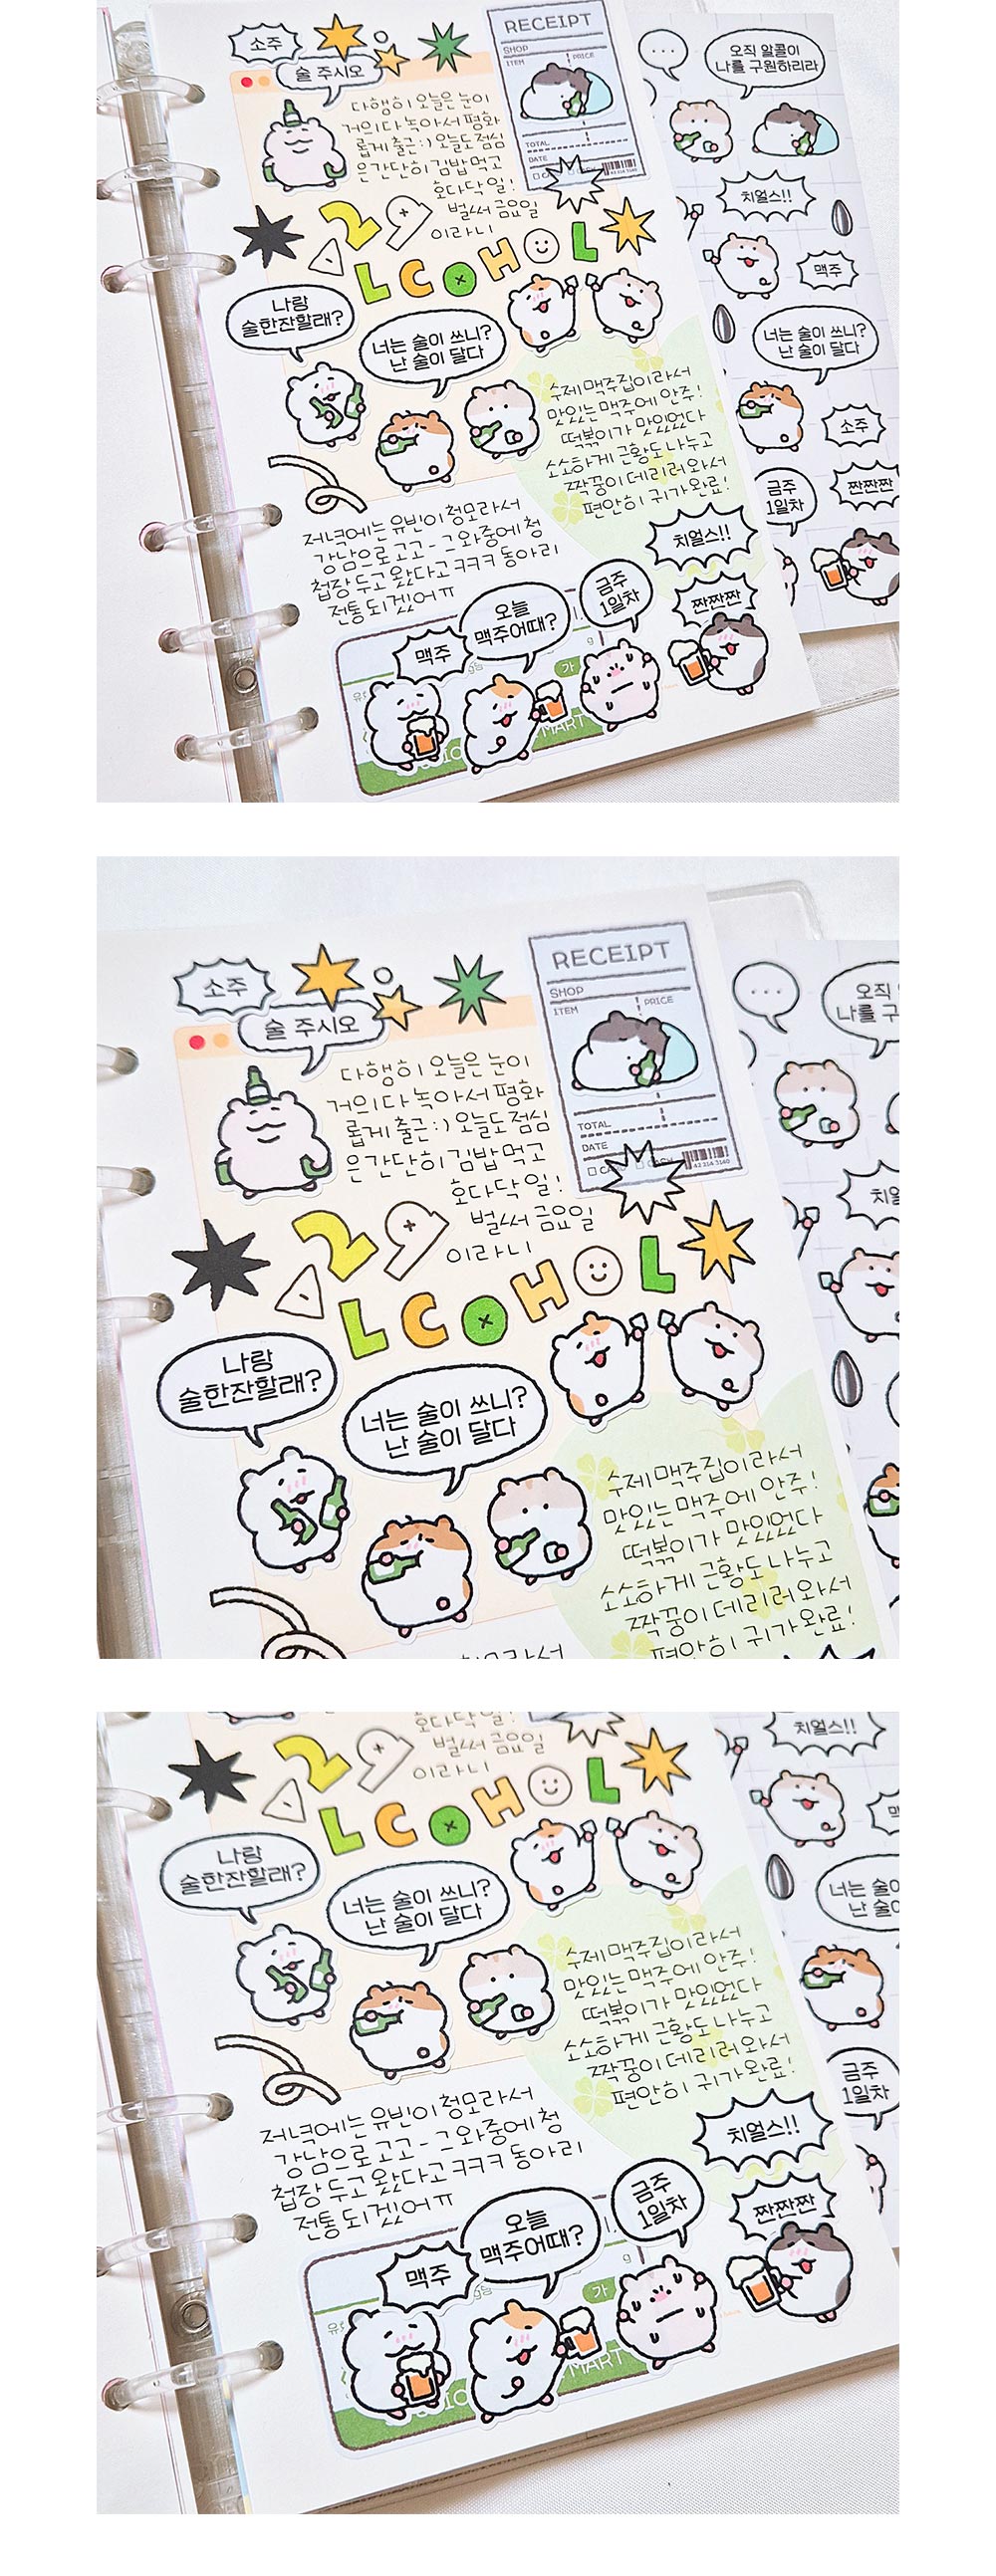 소주
술 주시오
다행히 오늘은 눈이
거의 다 녹아서 평화
롭게 출근 :) 오늘도 점심
은 간단히 김밥 먹고
호다닥 일!
벌써 금요일
이라니
RECEIPT
SHOP
ITEM
PRICE
TOTAL
DATE
29
ALCOHOL
나랑
술한잔할래?
너는 술이 쓰니?
난 술이 달다
수제 맥주집이라서
맛있는 맥주에 안주!
떡볶이가 맛있었다
소소하게 근황도 나누고
짝꿍이 데리러 와서
편안히 귀가 완료!
저녁에는 유빈이 청모라서
강남으로 고고 - 그 와중에 청
첩장 두고 왔다고 ㅋㅋㅋ 동아리
전통 되겠어 ㅠ
치얼스!!
짠짠짠
금주
1일차
오늘
맥주어때?
맥주
가
MART
...
오직 알콜이
나를 구원하리라
치얼스!!
맥주
너는 술이 쓰니?
난 술이 달다
소주
금주
1일차
짠짠짠
소주
술 주시오
다행히 오늘은 눈이
거의 다 녹아서 평화
롭게 출근 :) 오늘도 점심
은 간단히 김밥 먹고
호다닥 일!
벌써 금요일
이라니
RECEIPT
SHOP
ITEM
PRICE
TOTAL
DATE
29
ALCOHOL
나랑
술한잔할래?
너는 술이 쓰니?
난 술이 달다
수제 맥주집이라서
맛있는 맥주에 안주!
떡볶이가 맛있었다
소소하게 근황도 나누고
짝꿍이 데리러 와서
편안히 귀가 완료!
...
오직
나를 구
치얼
호다닥 일!
벌써 금요일
이라니
29
ALCOHOL
나랑
술한잔할래?
너는 술이 쓰니?
난 술이 달다
수제 맥주집이라서
맛있는 맥주에 안주!
떡볶이가 맛있었다
소소하게 근황도 나누고
짝꿍이 데리러 와서
편안히 귀가 완료!
저녁에는 유빈이 청모라서
강남으로 고고 - 그 와중에 청
첩장 두고 왔다고 ㅋㅋㅋ 동아리
전통 되겠어 ㅠ
치얼스!!
짠짠짠
금주
1일차
오늘
맥주어때?
맥주
가
MART
치얼스!!
너는 술이
난 술이
금주
1일차